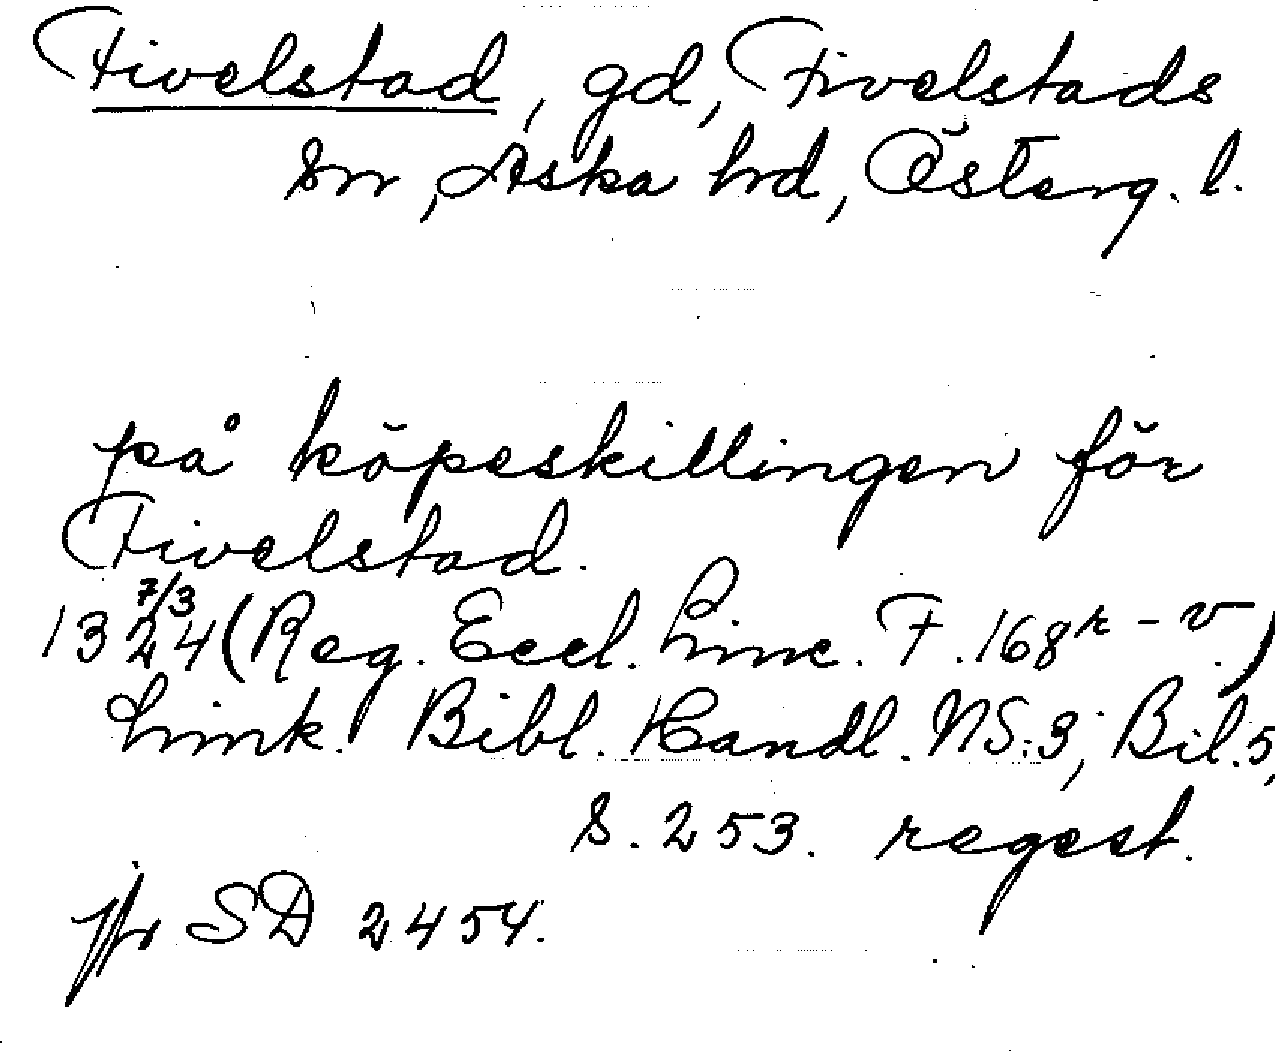 Fivelstad, gd, Fivelstads
sn, Aska hd, Österg. l.
på köpeskillingen för
Fivelstad.
1324 7/3 (Reg. Eccl. Linc. F. 168r - v.)
Link. Bibl. Handl. NS:3, Bil. 5,
S. 253. regest.
jfr SD 2454.